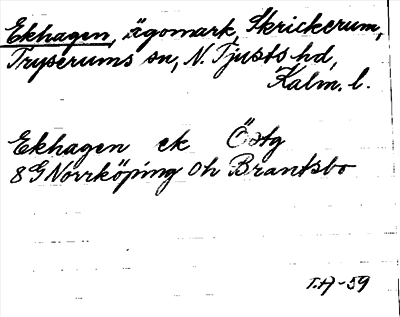 Ekhagen, ägomark, Skrickerum,
Tryserums sn, N. Tjusts hd,
Kalm. l.
Ekhagen ek Östg
8G Norrköping 0h Brantsbo
T.H-59